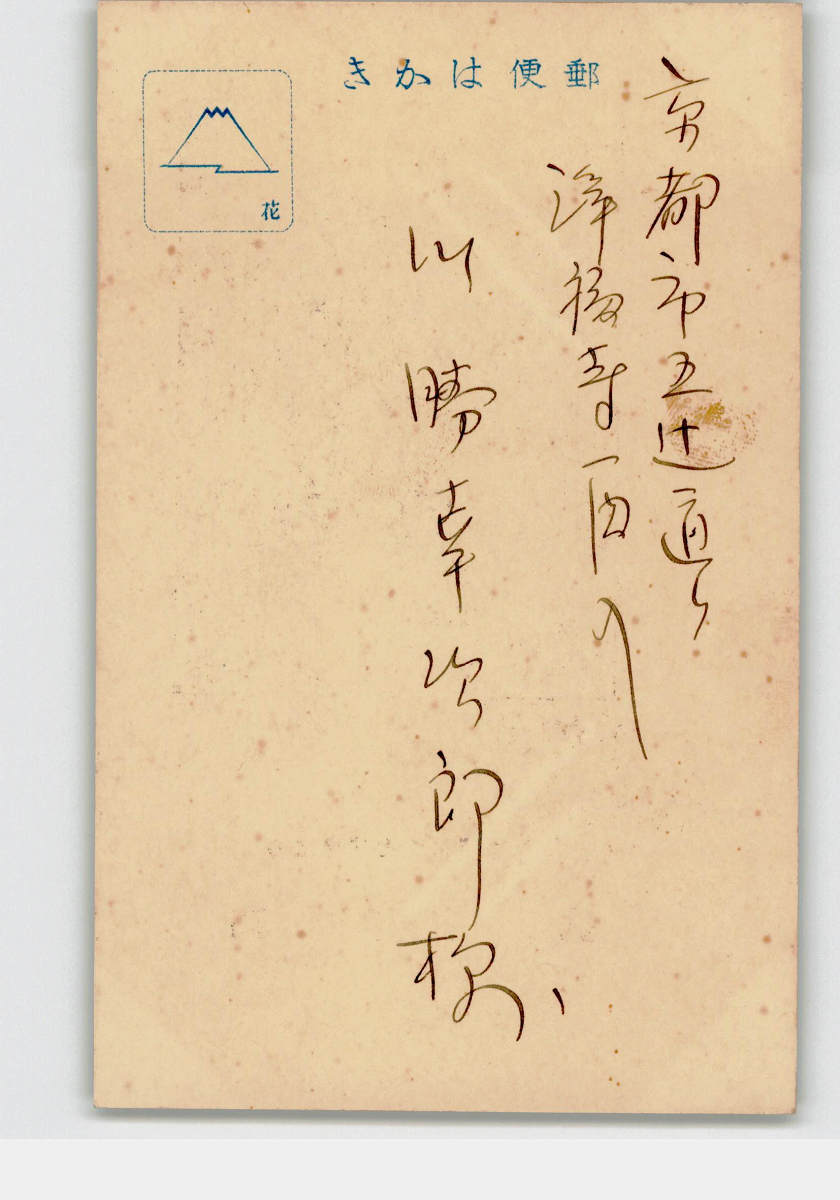 郵便はかき
花
京都市五辻通り
浄福寺西入
川勝幸次郎様